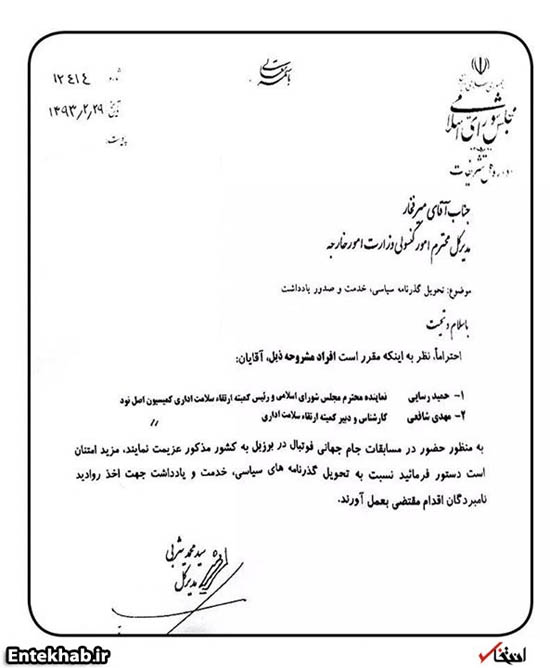 باسمه تعالی
جمهوری اسلامی ایران
مجلس شورای اسلامی
اداره کل تشریفات
شماره ۱۲۴۱۴
تاریخ ۱۳۹۳٫۲٫۲۹
پیوست
جناب آقای میرفخار
مدیرکل محترم امور کنسولی وزارت امور خارجه
موضوع: تحویل گذرنامه سیاسی، خدمت و صدور یادداشت
با سلام و تحیت
احتراماً، نظر به اینکه مقرر است افراد مشروحه ذیل، آقایان:
۱- حمید رسایی نماینده محترم مجلس شورای اسلامی و رئیس کمیته ارتقاء سلامت اداری کمیسیون اصل نود
۲- مهدی شافعی کارشناس و دبیر کمیته ارتقاء سلامت اداری //
به منظور حضور در مسابقات جام جهانی فوتبال در برزیل به کشور مذکور عزیمت نمایند، مزید امتنان
است دستور فرمائید نسبت به تحویل گذرنامه های سیاسی، خدمت و یادداشت جهت اخذ روادید
نامبردگان اقدام مقتضی بعمل آورند.
سید محمد یثربی
مدیرکل
Entekhab.ir
انتخاب